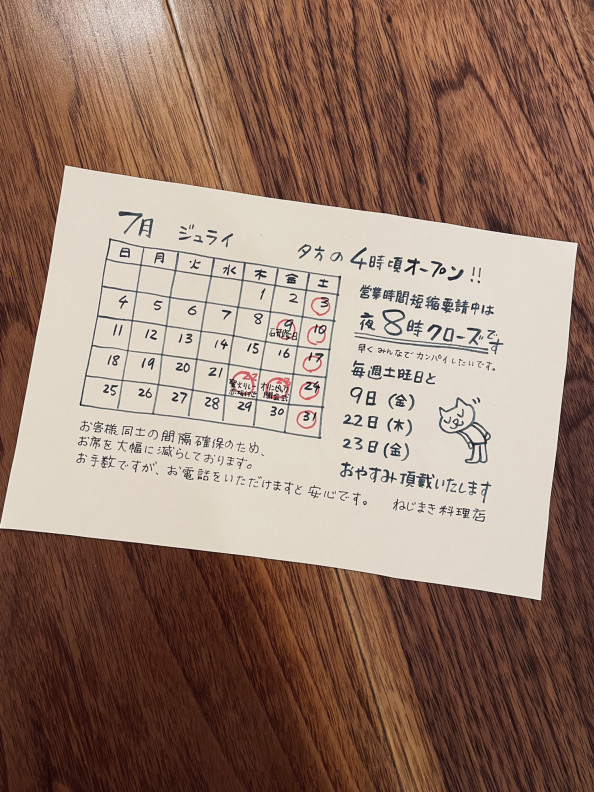 7月 ジュライ
日 月 火 水 木 金 土
1 2 3
4 5 6 7 8 9 10
11 12 13 14 15 16 17
18 19 20 21 22 23 24
25 26 27 28 29 30 31
お客様同士の間隔確保のため、
お席を大幅に減らしております。
お手数ですが、お電話をいただけますと安心です。
夕方の4時頃オープン!!
営業時間短縮要請中は
夜8時クローズです
早くみんなでカンパイしたいです。
毎週土曜日と
9日(金)
22日(木)
23日(金)
おやすみ頂戴いたします
ねじまき料理店